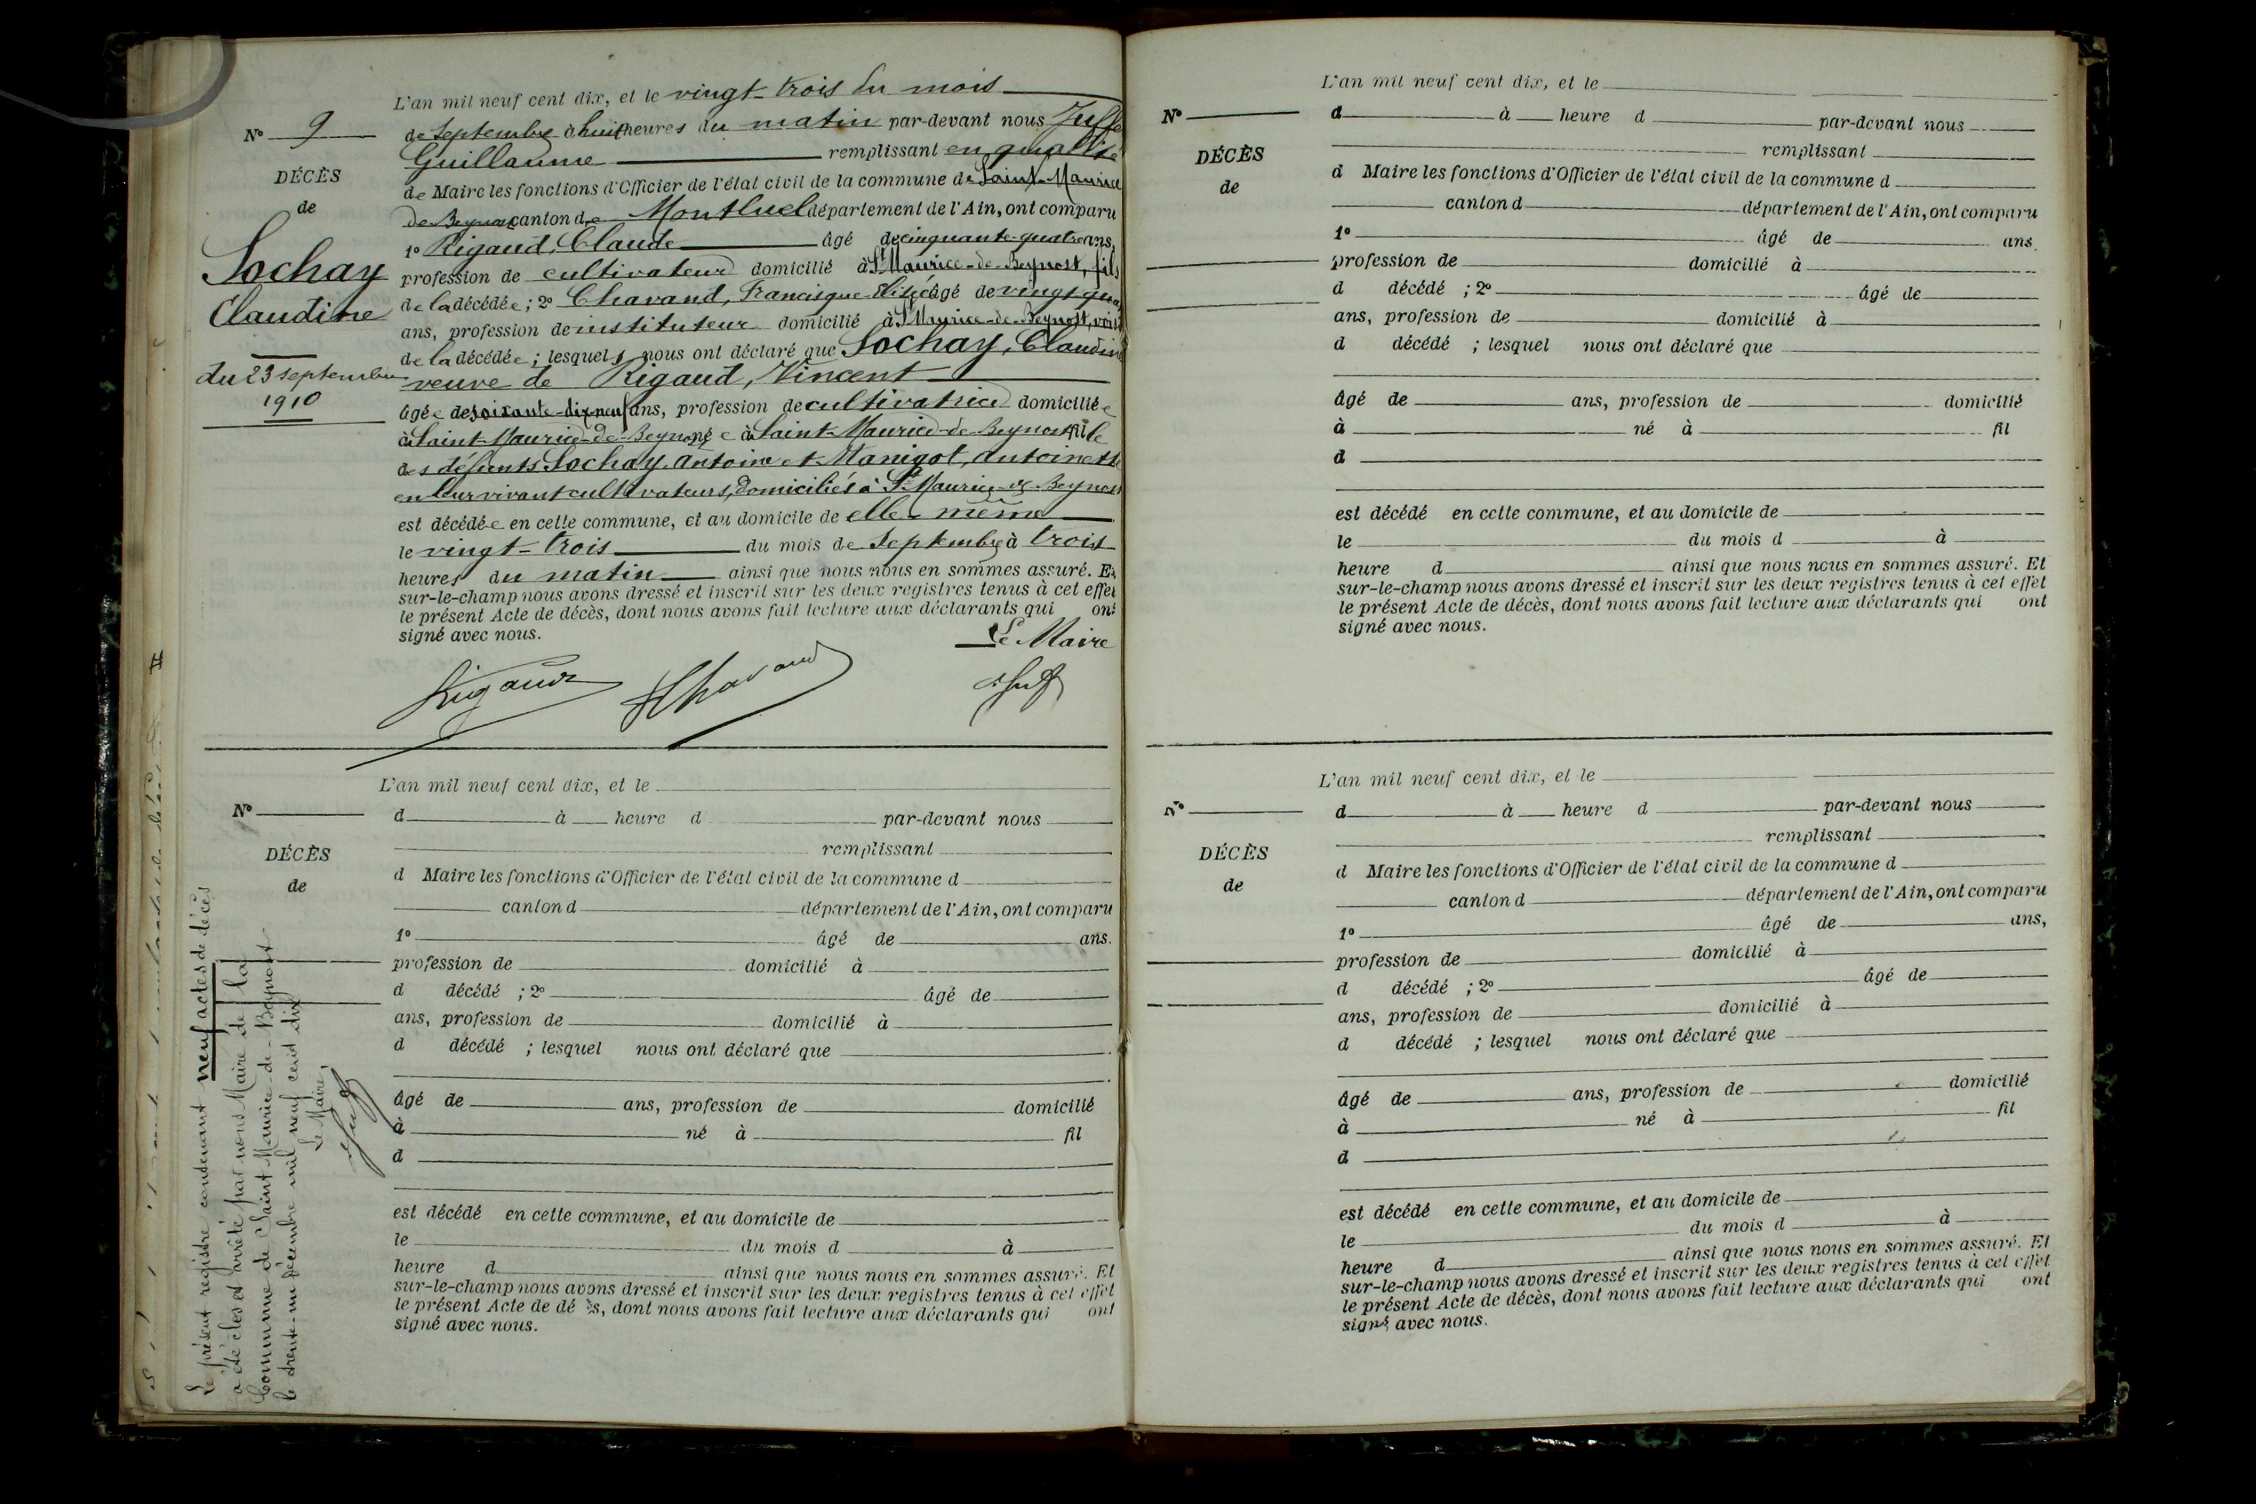 L'an mil neuf cent dix, et le vingt-trois du mois
N° 9
de Septembre à huit heures du matin par-devant nous
Guillaume remplissant en qualité
DÉCÈS
de Maire les fonctions d'Officier de l'état civil de la commune de Saint-Maurice
de
de Beynost canton de Montluel département de l'Ain, ont comparu
1° Rigaud, Claude âgé de cinquante-quatre ans,
Sochay
profession de cultivateur domicilié à St Maurice-de-Beynost, fils
Claudine
de la décédée ; 2° Chavand, Francisque Elisée âgé de vingt
ans, profession de instituteur domicilié à St Maurice-de-Beynost,
de la décédée ; lesquels nous ont déclaré que Sochay, Claudine
du 23 septembre
1910
veuve de Rigaud, Vincent
âgée de soixante-dix-neuf ans, profession de cultivatrice domiciliée
à Saint-Maurice-de-Beynost née à Saint-Maurice-de-Beynost fille
des défunts Sochay Antoine et Manigot, Antoinette
en leur vivant cultivateurs, domiciliés à St Maurice-de-Beynost
est décédée en cette commune, et au domicile de elle-même
le vingt-trois du mois de Septembre à trois
heures du matin ainsi que nous nous en sommes assuré. Et
sur-le-champ nous avons dressé et inscrit sur les deux registres tenus à cet effet
le présent Acte de décès, dont nous avons fait lecture aux déclarants qui ont
signé avec nous.
Le Maire
Rigaud Chavand
L'an mil neuf cent dix, et le
N°
d à heure d par-devant nous
remplissant
DÉCÈS
d Maire les fonctions d'Officier de l'état civil de la commune d
de
canton d département de l'Ain, ont comparu
1° âgé de ans.
profession de domicilié à
d décédé ; 2° âgé de
ans, profession de domicilié à
d décédé ; lesquel nous ont déclaré que
âgé de ans, profession de domicilié
à né à fil
d
est décédé en cette commune, et au domicile de
le du mois d à
heure d ainsi que nous nous en sommes assuré. Et
sur-le-champ nous avons dressé et inscrit sur les deux registres tenus à cet effet
le présent Acte de décès, dont nous avons fait lecture aux déclarants qui ont
signé avec nous.
Le présent registre contenant neuf actes de décès
a été clos et arrêté par nous Maire de la
Commune de Saint-Maurice-de-Beynost
le trente-un décembre mil neuf cent dix
Le Maire,
L'an mil neuf cent dix, et le
N°
d à heure d par-devant nous
remplissant
DÉCÈS
d Maire les fonctions d'Officier de l'état civil de la commune d
de
canton d département de l'Ain, ont comparu
1° âgé de ans.
profession de domicilié à
d décédé ; 2° âgé de
ans, profession de domicilié à
d décédé ; lesquel nous ont déclaré que
âgé de ans, profession de domicilié
à né à fil
d
est décédé en cette commune, et au domicile de
le du mois d à
heure d ainsi que nous nous en sommes assuré. Et
sur-le-champ nous avons dressé et inscrit sur les deux registres tenus à cet effet
le présent Acte de décès, dont nous avons fait lecture aux déclarants qui ont
signé avec nous.
L'an mil neuf cent dix, et le
N°
d à heure d par-devant nous
remplissant
DÉCÈS
d Maire les fonctions d'Officier de l'état civil de la commune d
de
canton d département de l'Ain, ont comparu
1° âgé de ans,
profession de domicilié à
d décédé ; 2° âgé de
ans, profession de domicilié à
d décédé ; lesquel nous ont déclaré que
âgé de ans, profession de domicilié
à né à fil
d
est décédé en cette commune, et au domicile de
le du mois d à
heure d ainsi que nous nous en sommes assuré. Et
sur-le-champ nous avons dressé et inscrit sur les deux registres tenus à cet effet
le présent Acte de décès, dont nous avons fait lecture aux déclarants qui ont
signé avec nous.